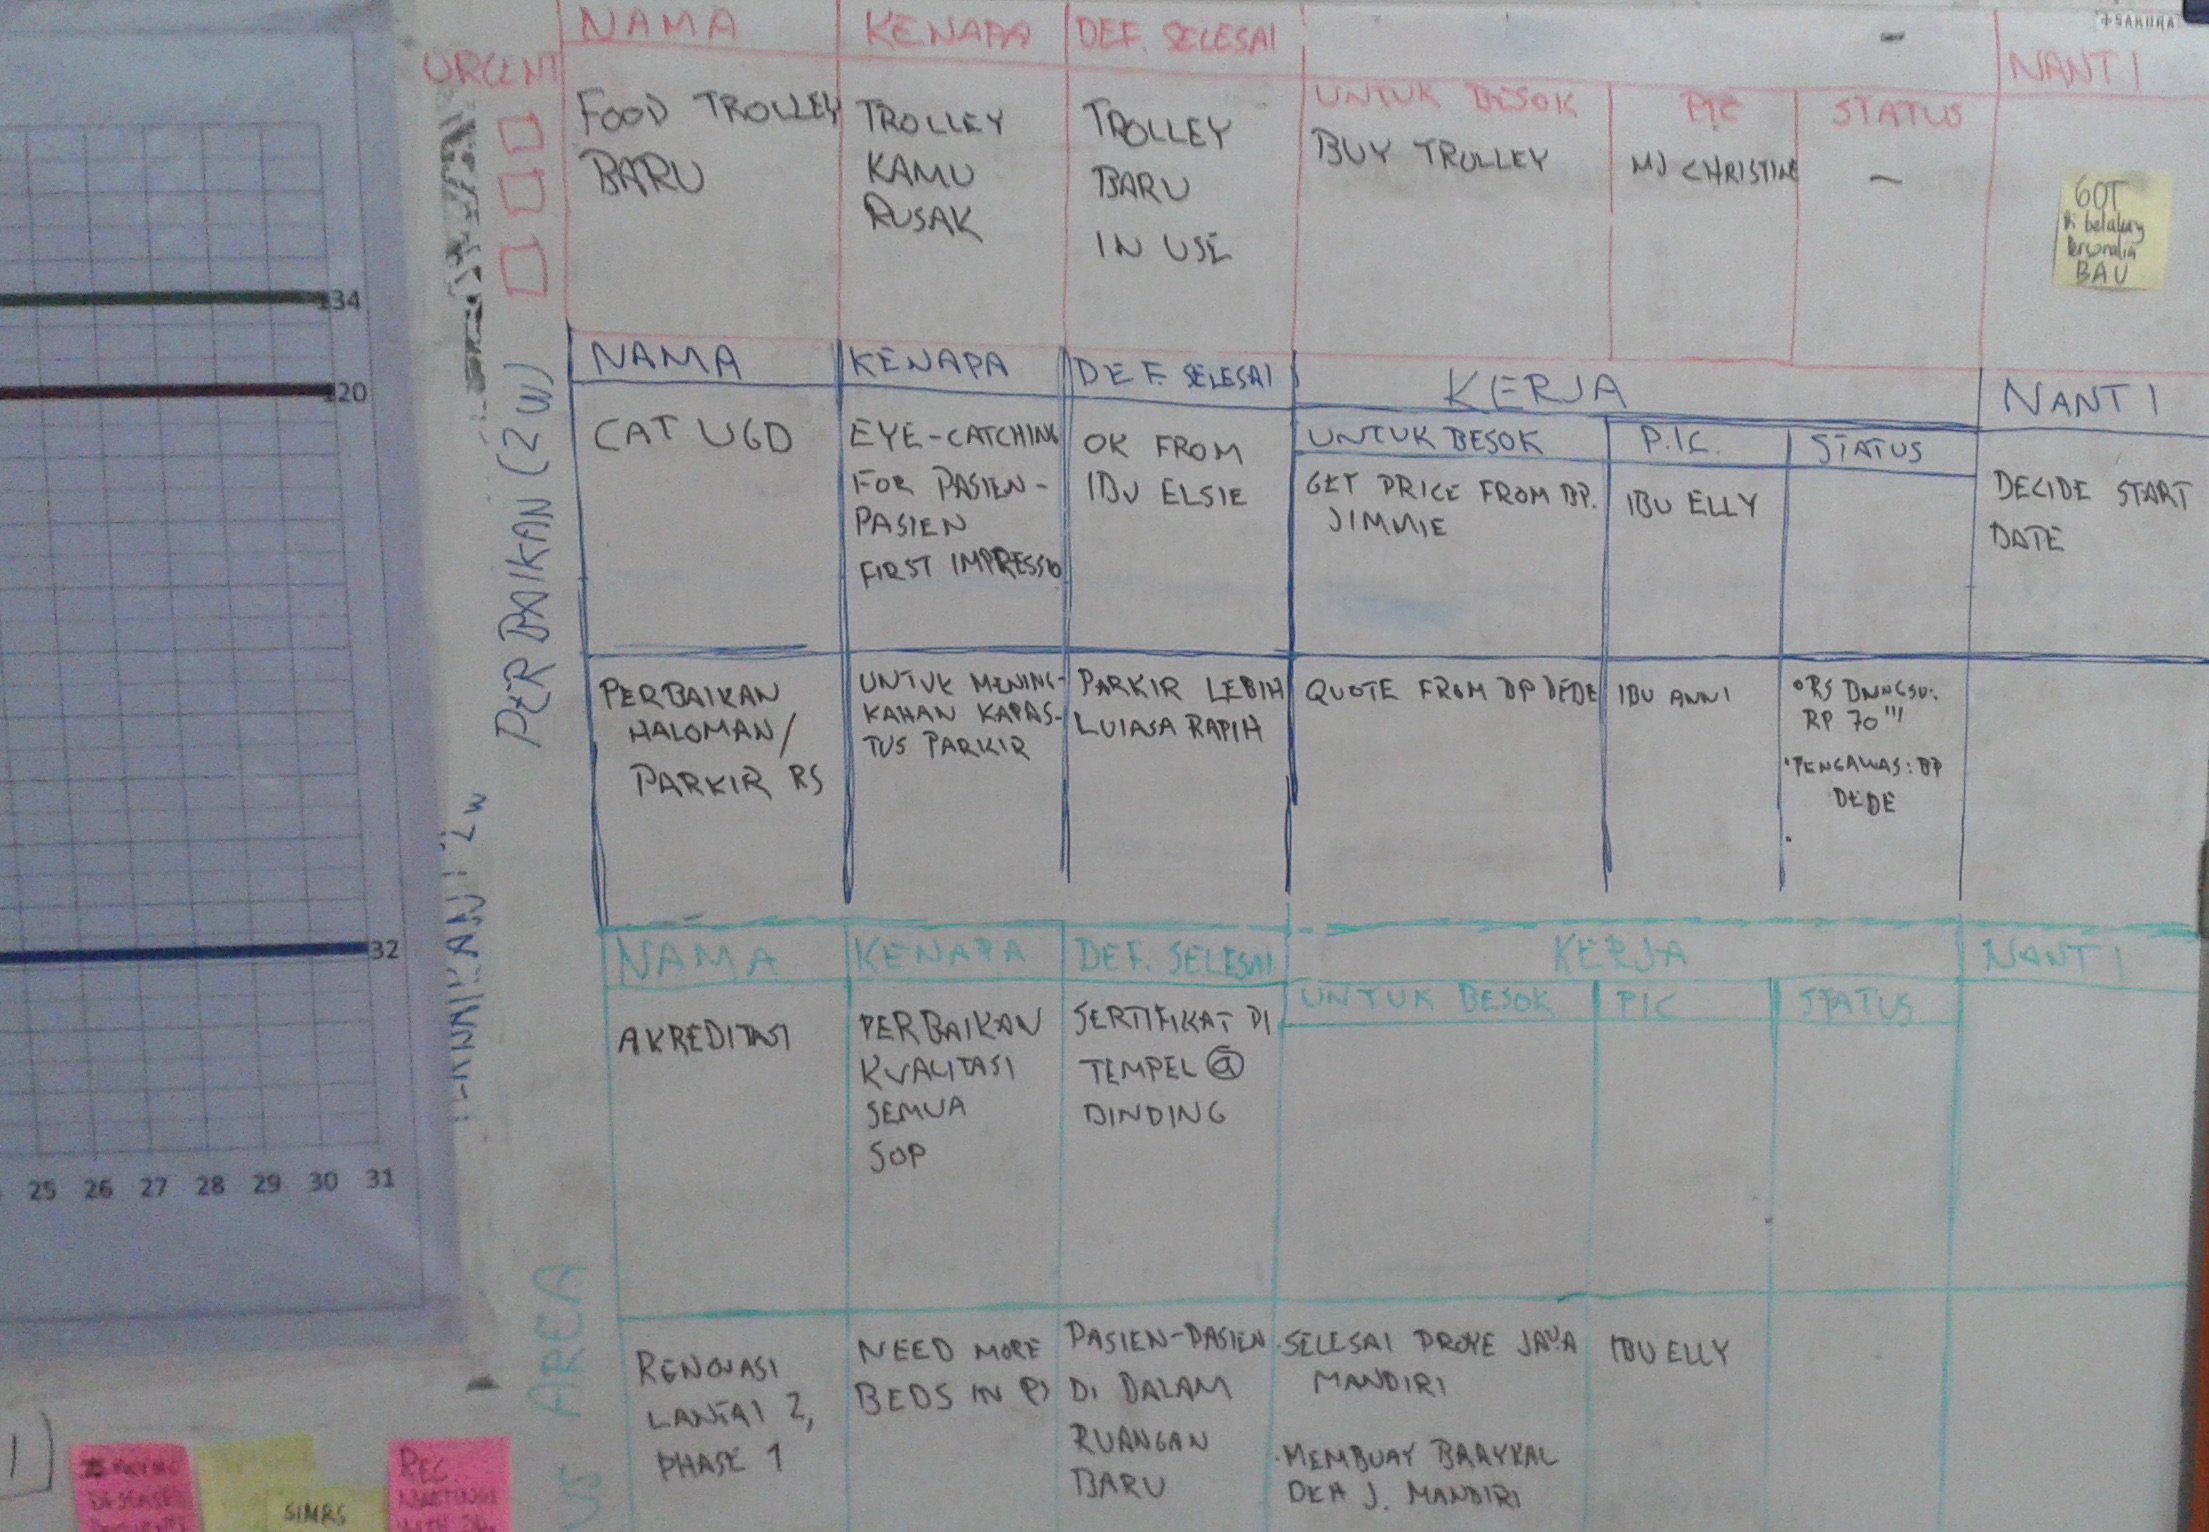 SAKURA
URGENT
NAMA
KENAPA
DEF. SELESAI
NANTI
UNTUK BESOK
PIC
STATUS
FOOD TROLLEY
BARU
TROLLEY
KAMU
RUSAK
TROLLEY
BARU
IN USE
BUY TROLLEY
MJ CHRISTINE
—
GOT
Di belakang
Personalia
BAU
PERBAIKAN (2 W)
NAMA
KENAPA
DEF. SELESAI
KERJA
NANTI
UNTUK BESOK
P.I.C.
STATUS
CAT UGD
EYE-CATCHING
FOR PASIEN-
PASIEN
FIRST IMPRESSIO
OK FROM
IBU ELSIE
GET PRICE FROM BP.
JIMMIE
IBU ELLY
DECIDE START
DATE
PERBAIKAN
HALOMAN/
PARKIR RS
UNTUK MENING-
KAHAN KAPAS-
TUS PARKIR
PARKIR LEBIH
LUIASA RAPIH
QUOTE FROM BP DEDE
IBU ANNI
RS
RP 70
PENGAWAS: BP
DEDE
2W
AREA
NAMA
KENAPA
DEF. SELESAI
KERJA
NANTI
UNTUK BESOK
PIC
STATUS
AKREDITASI
PERBAIKAN
KUALITASI
SEMUA
SOP
SERTIFIKAT DI
TEMPEL @
DINDING
RENOVASI
LANTAI 2,
PHASE 1
NEED MORE
BEDS IN
PASIEN-PASIEN
DI DALAM
RUANGAN
BARU
SELESAI PROYE JAYA
MANDIRI
MEMBUAY
J. MANDIRI
IBU ELLY
134
120
32
25 26 27 28 29 30 31
SIMRS
REC.